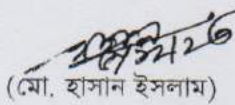 (মো. হাসান ইসলাম)